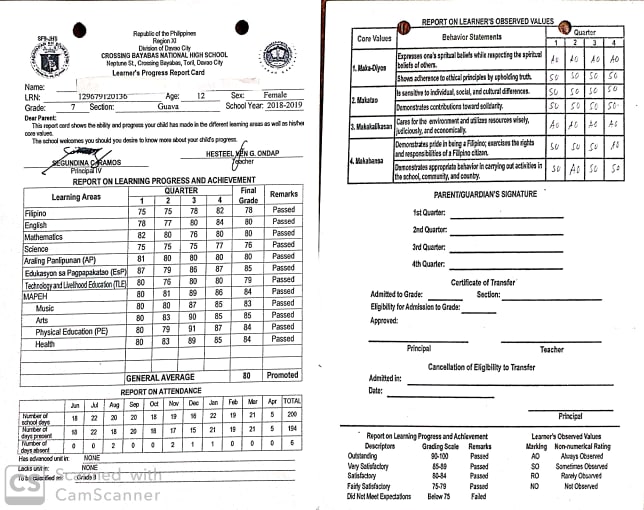 SFB-JHS
Republic of the Philippines
Region XI
Division of Davao City
CROSSING BAYABAS NATIONAL HIGH SCHOOL
Neptune St., Crossing Bayabas, Toril, Davao City
Learner's Progress Report Card
Name:
LRN: 129679120136 Age: 12 Sex: Female
Grade: 7 Section: Guava School Year: 2018-2019
Dear Parent:
This report card shows the ability and progress your child has made in the different learning areas as well as his/her
core values.
The school welcomes you should you desire to know more about your child's progress.
HESTEEL G. ONDAP
Teacher
SEGUNDINA C. RAMOS
Principal IV
REPORT ON LEARNING PROGRESS AND ACHIEVEMENT
Learning Areas QUARTER Final Grade Remarks
1 2 3 4
Filipino 75 75 78 82 78 Passed
English 78 77 80 84 80 Passed
Mathematics 82 80 76 80 80 Passed
Science 75 75 75 77 76 Passed
Araling Panlipunan (AP) 81 80 80 80 80 Passed
Edukasyon sa Pagpapakatao (EsP) 87 79 86 87 85 Passed
Technology and Livelihood Education (TLE) 80 76 80 80 79 Passed
MAPEH 80 81 89 86 84 Passed
Music 80 80 87 85 83 Passed
Arts 80 83 90 85 85 Passed
Physical Education (PE) 80 79 91 87 84 Passed
Health 80 83 89 85 84 Passed
GENERAL AVERAGE 80 Promoted
REPORT ON ATTENDANCE
Jun Jul Aug Sep Oct Nov Dec Jan Feb Mar Apr TOTAL
Number of school days 18 22 20 20 18 19 16 22 19 21 5 200
Number of days present 18 22 18 20 18 17 15 21 19 21 5 194
Number of days absent 0 0 2 0 0 2 1 1 0 0 0 6
Has advanced unit in: NONE
Lacks unit in: NONE
To be classified as: Grade 8
CS Scanned with
CamScanner
REPORT ON LEARNER'S OBSERVED VALUES
Core Values Behavior Statements Quarter
1 2 3 4
1. Maka-Diyos Expresses one's spritual beliefs while respecting the spiritual beliefs of others. AO AO AO AO
Shows adherence to ethical principles by upholding truth. SO SO SO SO
2. Makatao Is sensitive to individual, social, and cultural differences. SO SO SO SO
Demonstrates contributions toward solidarity. SO SO SO SO
3. Makakalikasan Cares for the environment and utilizes resources wisely, judiciously, and economically. AO AO AO AO
4. Makabansa Demonstrates pride in being a Filipino; exercises the rights and responsibilities of a Filipino citizen. SO SO SO AO
Demonstrates appropriate behavior in carrying out activities in the school, community, and country. SO AO SO SO
PARENT/GUARDIAN'S SIGNATURE
1st Quarter:
2nd Quarter:
3rd Quarter:
4th Quarter:
Certificate of Transfer
Admitted to Grade: Section:
Eligibility for Admission to Grade:
Approved:
Principal Teacher
Cancellation of Eligibility to Transfer
Admitted in:
Date:
Principal
Report on Learning Progress and Achievement
Descriptors Grading Scale Remarks
Outstanding 90-100 Passed
Very Satisfactory 85-89 Passed
Satisfactory 80-84 Passed
Fairly Satisfactory 75-79 Passed
Did Not Meet Expectations Below 75 Failed
Learner's Observed Values
Marking Non-numerical Rating
AO Always Observed
SO Sometimes Observed
RO Rarely Observed
NO Not Observed